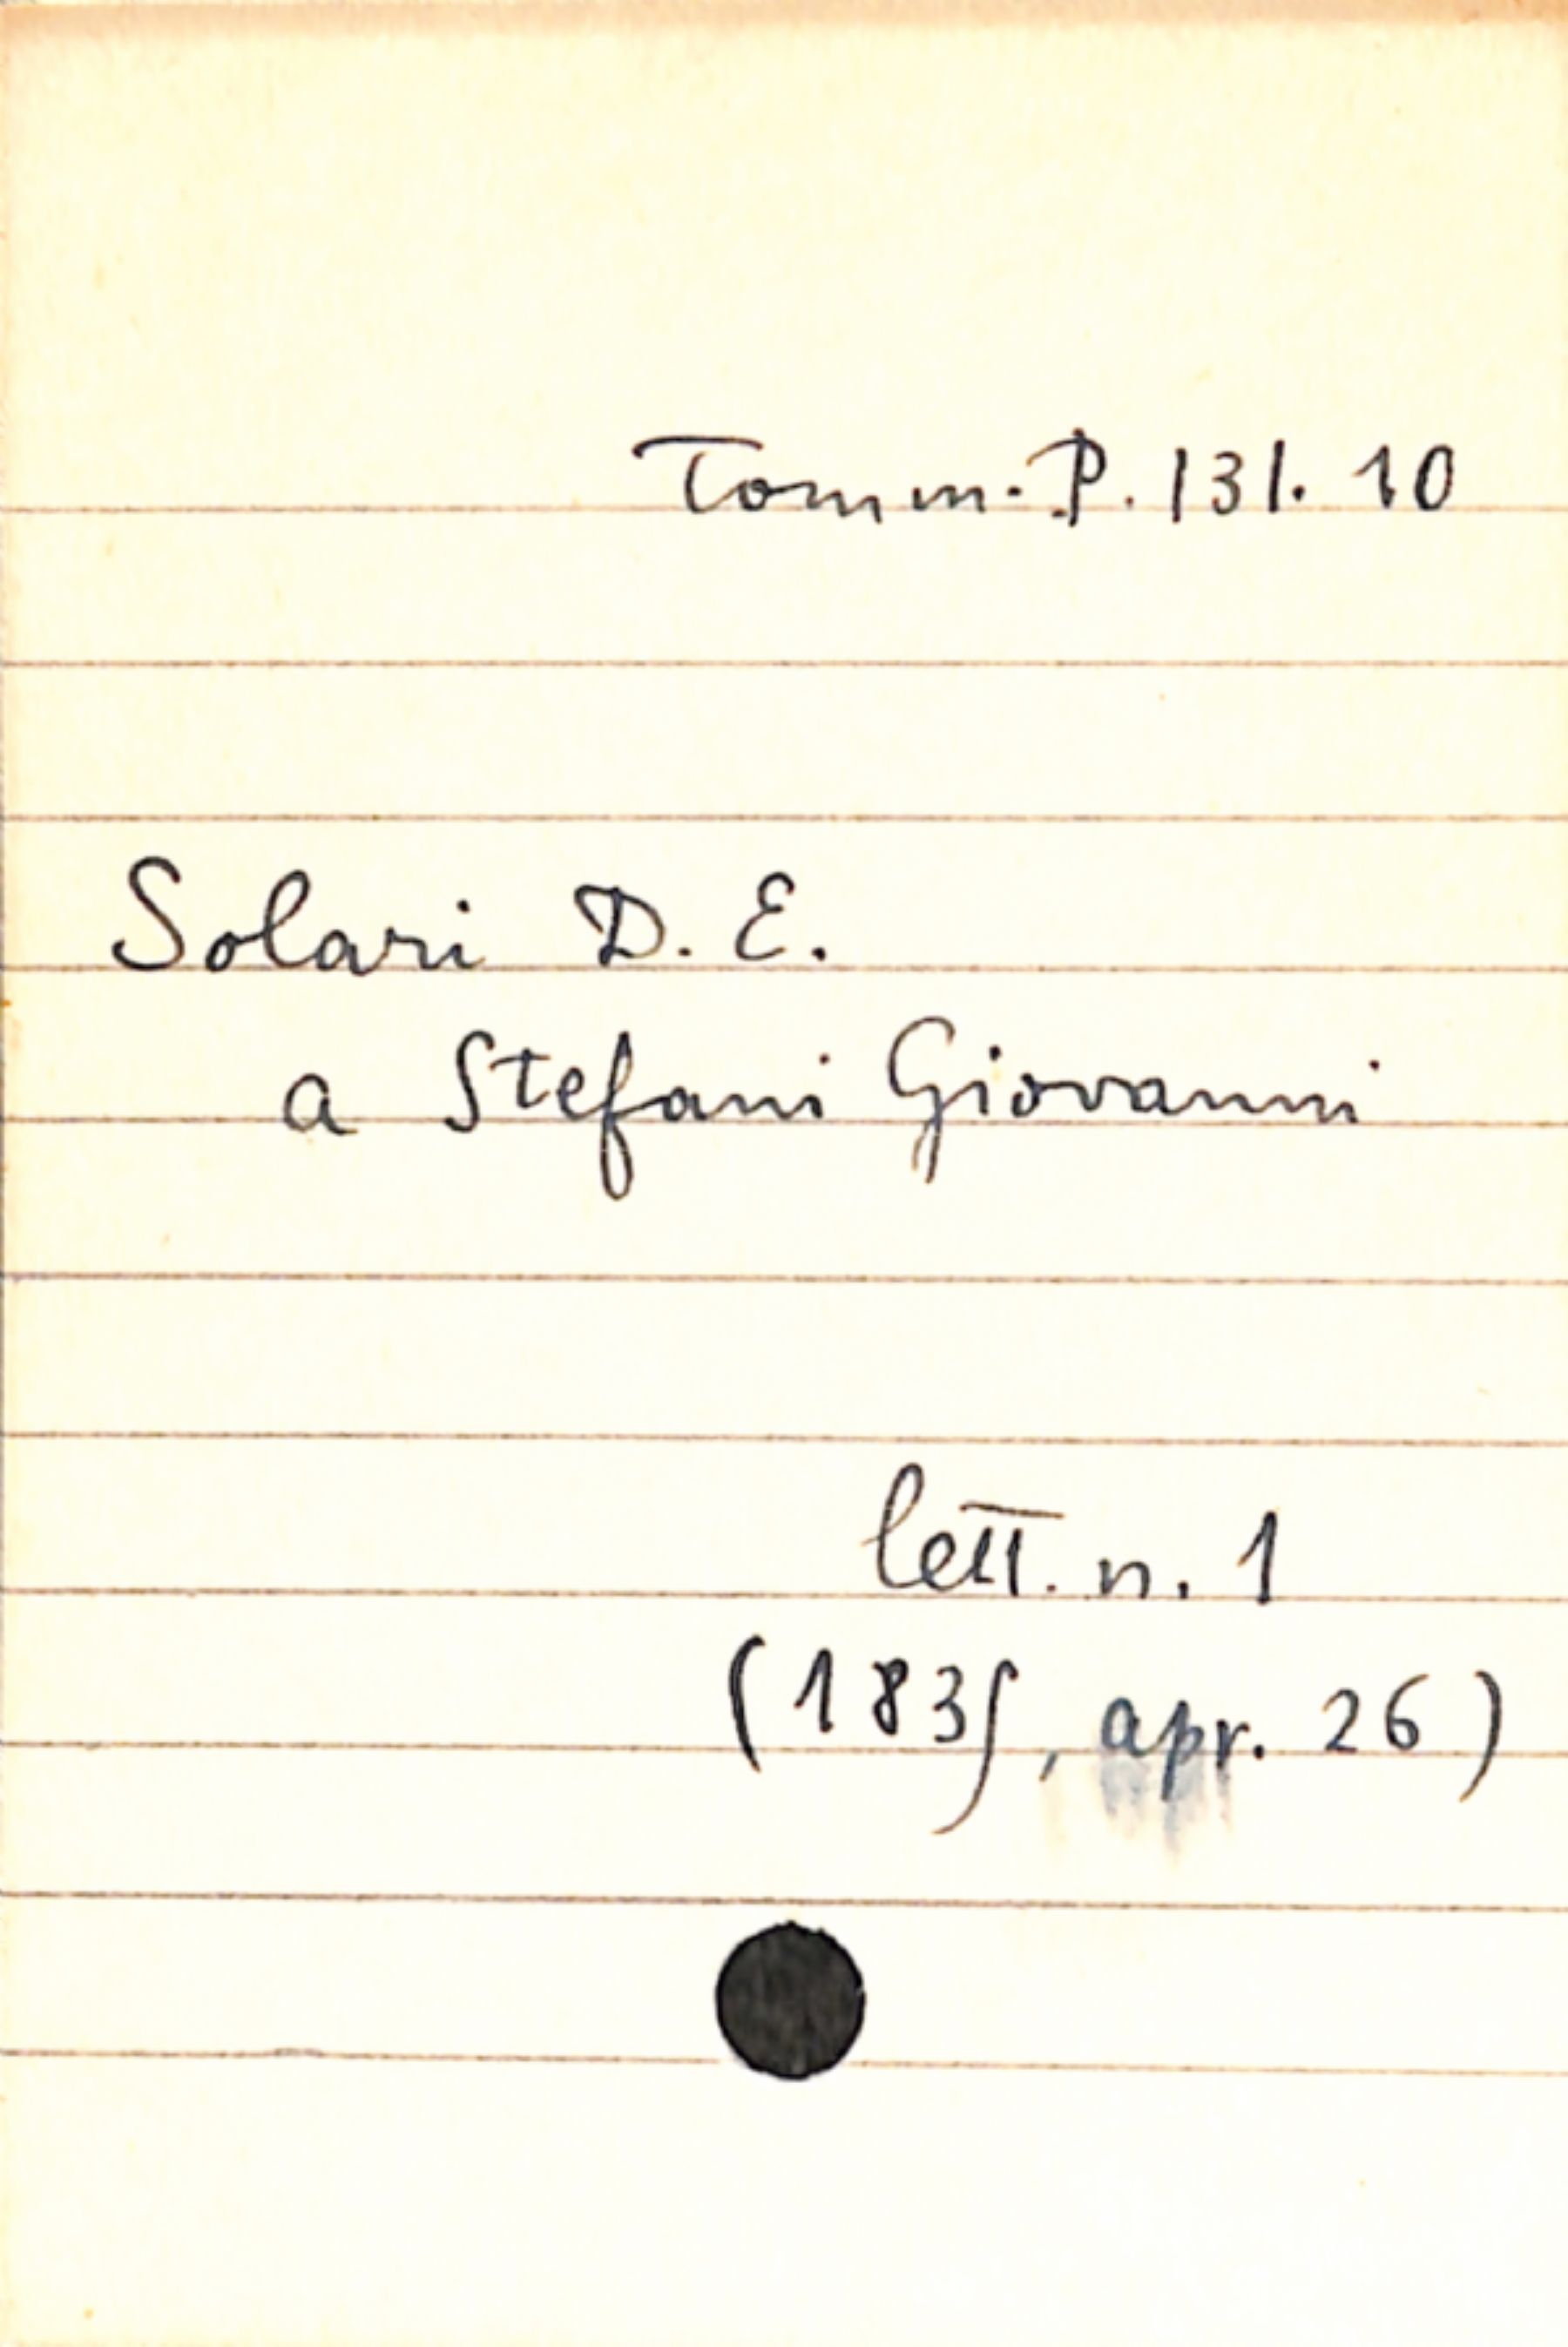 Tomm. P. 131. 10
Solari D. E.
a Stefani Giovanni
lett. n. 1
(1835, apr. 26)